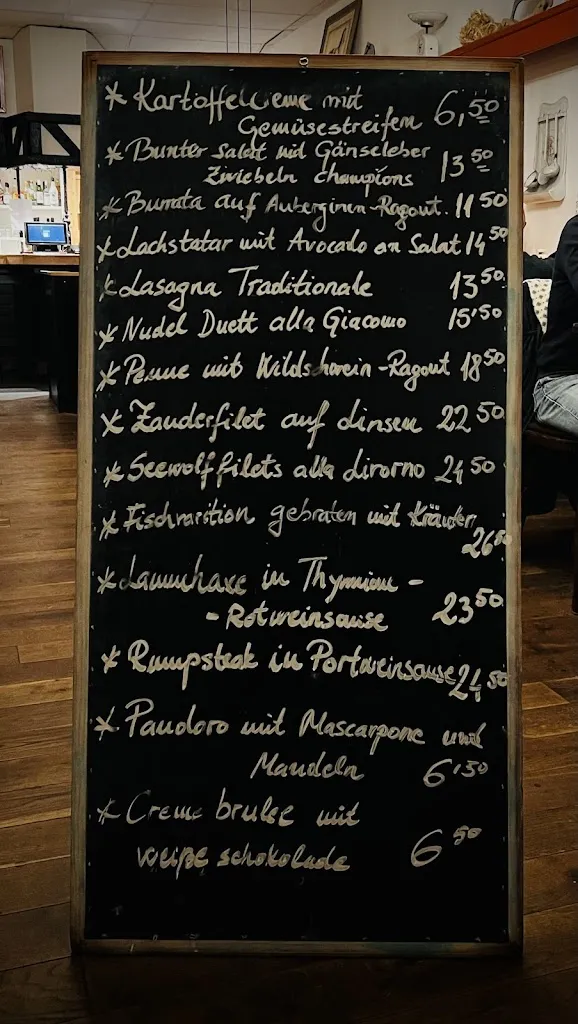 * Kartoffelcreme mit 6,50
Gemüsestreifen
* Bunter Salat mid Gänseleber
Zwiebeln champions 13 50
* Burrata auf Auberginen-Ragout. 11 50
* Lachstatar mit Avocado an Salat 14 50
* Lasagna Traditionale 13 50
* Nudel Duett alla Giacomo 15'50
* Penne mit Wildschwein-Ragout 18 50
* Zanderfilet auf Linsen 22 50
* Seewolffilets alla Livorno 24 50
* Fischvarition gebraten mit Kräuter
26 50
* Lammhaxe in Thymian -
- Rotweinsause 23 50
* Rumpsteak in Portweinsause 24 50
* Pandoro mit Mascarpone und
Mandeln 6'50
* Creme brulee mit
weiße schokolade 6 50